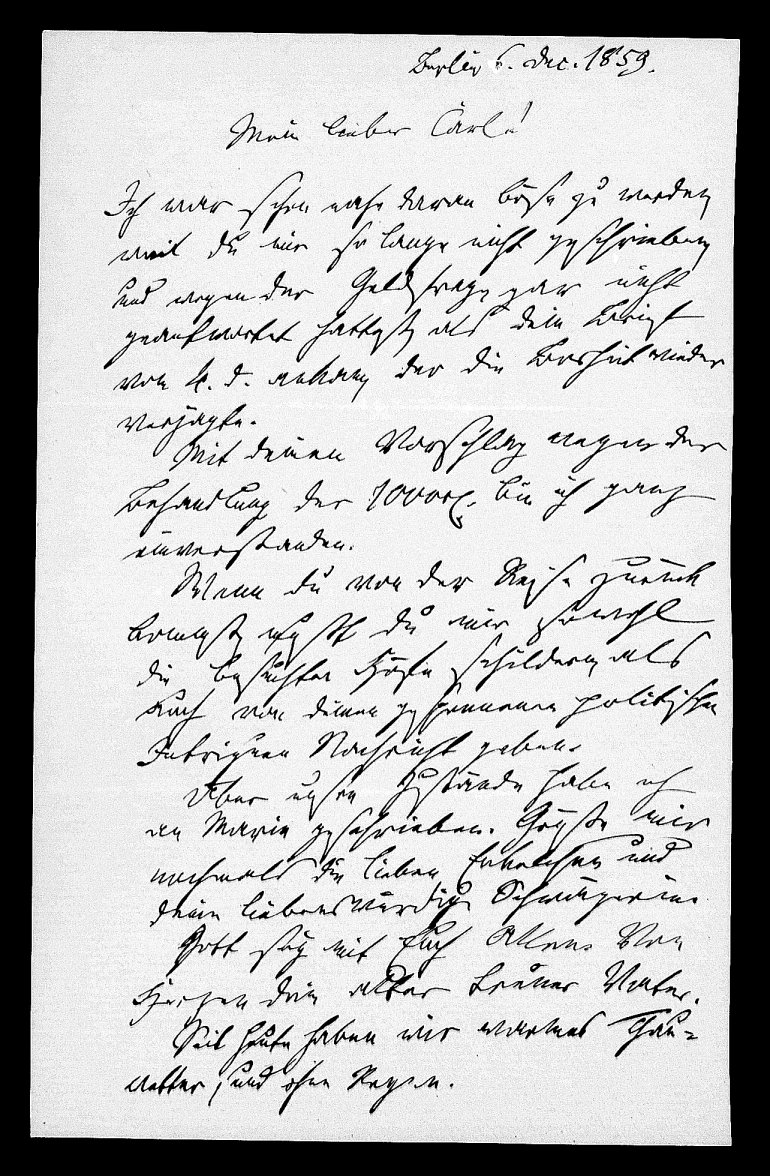 Berlin 6. Dec. 1859.
Mein lieber Carl!
Ich war schon nahe daran böse zu werden
weil du mir so lange nicht geschrieben
und wegen der Geldfrage gar nicht
geantwortet hattest, als dein Brief
von 4. d. ankam, der die Bosheit wieder
verjagte.
Mit deinem Vorschlag wegen der
Behandlung der 1000 rl. bin ich ganz
einverstanden.
Wenn du von der Reise zurück
kommst, mußt du mir sowohl
die besuchten Höfe schildern, als
auch von deinen gesponnenen politischen
Intriguen Nachricht geben.
Über unsere Zustände habe ich
an Marie geschrieben. Grüße mir
nochmals die lieben Enkelchen und
deine liebenswürdige Schwägerin.
Gott sey mit Euch Allen. Von
Herzen dein alter treuer Vater.
Seit heute haben wir warmes Thau-
wetter, und ohne Regen.